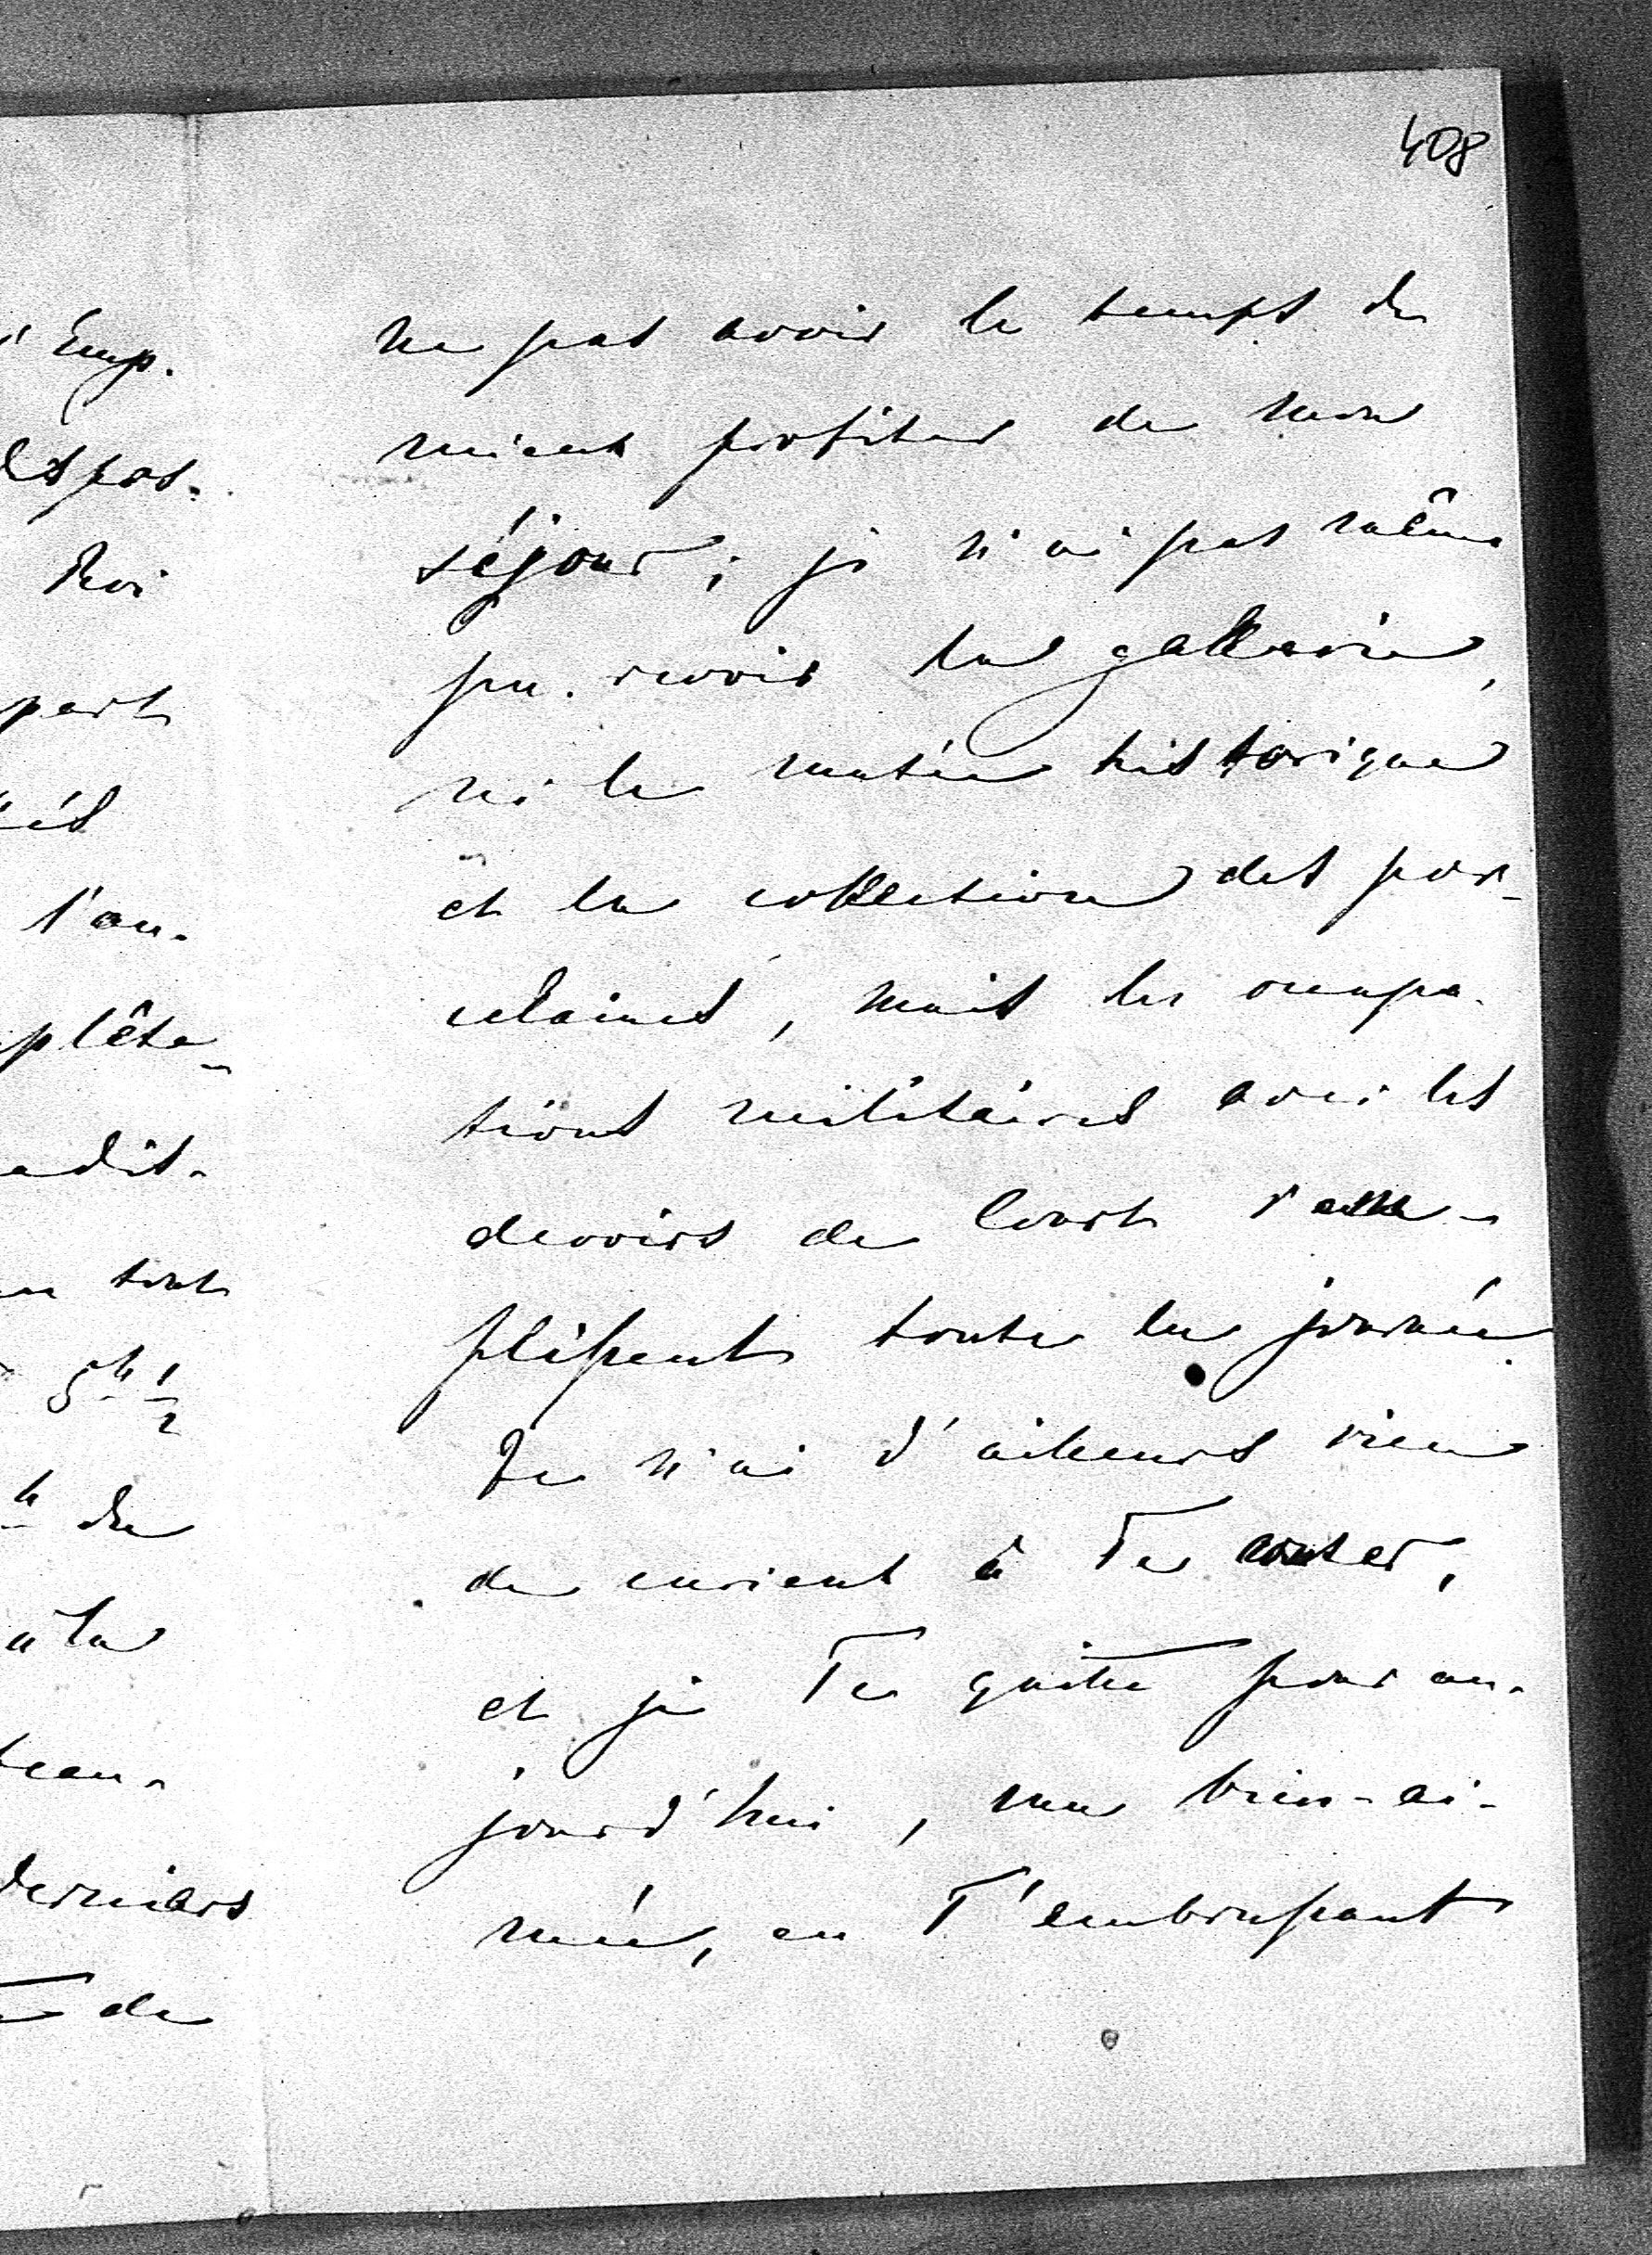 408
ne pas avoir le temps de
mieux profiter de mon
séjour; je n'ai pas même
pu revoir la gallerie,
ni le musée historique
et la collection des por-
celaines, mais les occupa-
tions militaires avec les
devoirs de Court rem-
plissent toute la journée.
Je n'ai d'ailleurs rien
de curieux à Te conter,
et je Te quitte pour au-
jourd'hui, ma bien-ai-
mée, en T'embrassant
Emp.
Roi
part
l'au-
plête-
tout
5h 1/2
h du
à la
derniers
de